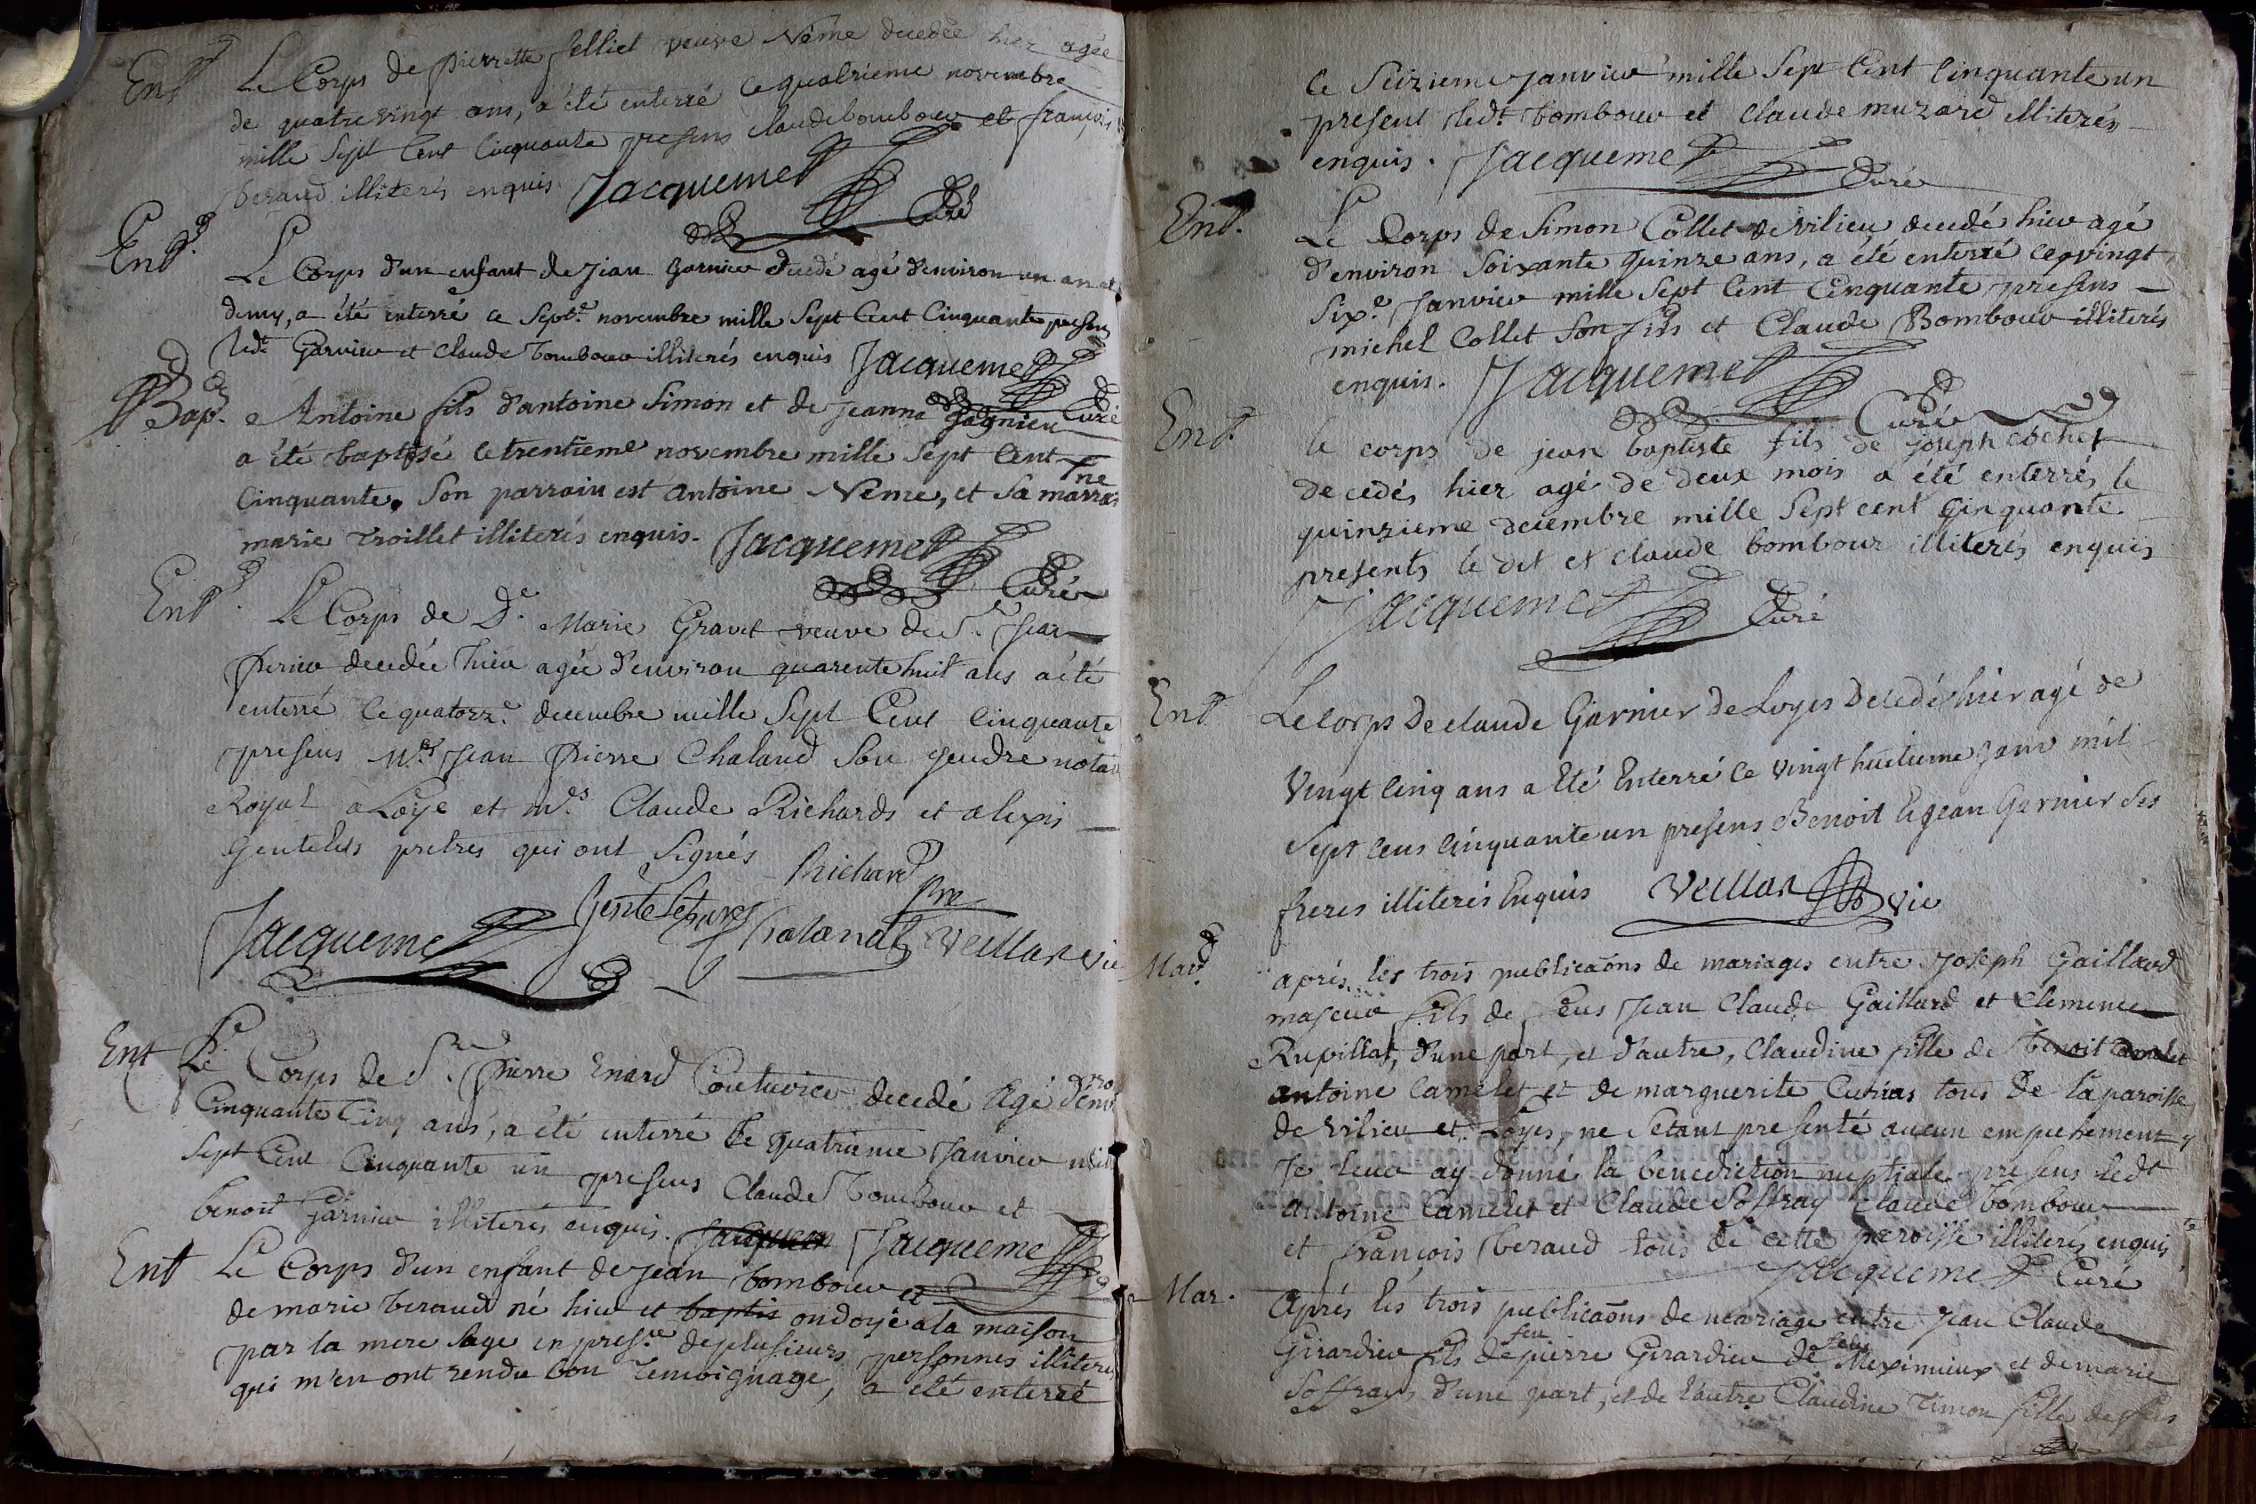 Ent.
Le Corps de pierrette felliet veuve Neme decedée hier agée
de quatre vingt ans, a été enterré ce quatrieme novembre
mille Sept Cent Cinquante presens claude bombour et françois
beraud illiterés enquis. Jacquemet
Curé
Ent.
Le Corps d'un enfant de jean garnier decedé agé d'environ un an et
demy, a été enterré ce Sept.e novembre mille Sept Cent Cinquante presens
led.t Garnier et claude bombour illiterés enquis Jacquemet
Curé
Bap.
Antoine fils d'antoine Simon et de jeanne Jagnieu
a été baptisé le trentieme novembre mille Sept Cent
Cinquante. Son parrain est antoine Neme, et sa marraine
marie Troillet illiterés enquis. Jacquemet
Curé
Ent.
Le Corps de D.e Marie Gravet veuve de S.r Jean
perier decedée hier agée d'environ quarente huit ans a été
enterré ce quatorz.e decembre mille Sept Cent Cinquante
presens M.r Jean pierre Chaland Son gendre notaire
Royal a Loye et m.rs Claude Richards et alexis
Gentelets pretres qui ont Signés
Richard
pre
Jacquemet Gentelet Chaland Veillas vic
Ent
Le Corps de S.r pierre Enard Couturier decedé agé d'environ
Cinquante Cinq ans, a été enterré le quatrieme Janvier mille
Sept Cent Cinquante un presens Claude Bombour et
benoit Garnier illiterés enquis. Jacquem Jacquemet
Ent
Le Corps d'un enfant de jean bombour et
de marie beraud né hier et baptis ondoyé a la maison
par la mere Sage en pres.ce de plusieurs personnes illiterés
qui m'en ont rendu bon temoignage, a été enterré
le Seizieme janvier mille Sept Cent Cinquante un
present led.t bombour et Claude muzard illiterés
enquis. Jacquemet
Curé
Ent.
Le Corps de Simon Collet de vilieu decedé hier agé
d'environ Soixante quinze ans, a été enterré ce vingt
Six.e Janvier mille Sept Cent Cinquante presens
michel Collet Son fils et Claude Bombour illiterés
enquis. Jacquemet
Curé
Ent.
le corps de jean baptiste fils de joseph cochet
decedés hier agé de deux mois a été enterrés le
quinzieme decembre mille Sept cent Cinquante
presents le dit et claude bombour illiterés enquis
Jacquemet Curé
Ent
Le Corps De claude Garnier de Loyes Decedé hier agé de
Vingt Cinq ans a Eté Enterré ce vingt huitieme janv mil
Sept Cens Cinquante un presens Benoit et jean Garnier Ses
freres illiterés Enquis Veillas vic
Mar.
aprés les trois publicaõns de mariages entre Joseph Gaillard
majeur fils de feus Jean Claude Gaillard et Clemence
Ruvillat, d'une part, et d'autre, Claudine fille de benoit camelet
antoine Camelet et de marguerite Curias tous de la paroisse
de vilieu et Loyes, ne S'etant presenté aucun empechement
Je leur ay donné la benediction nuptiale presens led.t
antoine Camelet et Claude Soffray Claude bombour
et François beraud tous de cette paroisse illiterés enquis
Jacquemet Curé
Mar.
Aprés les trois publicaõns de mariage entre Jean Claude
Girardier fils de feu pierre Girardier de Meximieux et de marie
Soffrays d'une part, et de l'autre Claudine Timon fille de feus